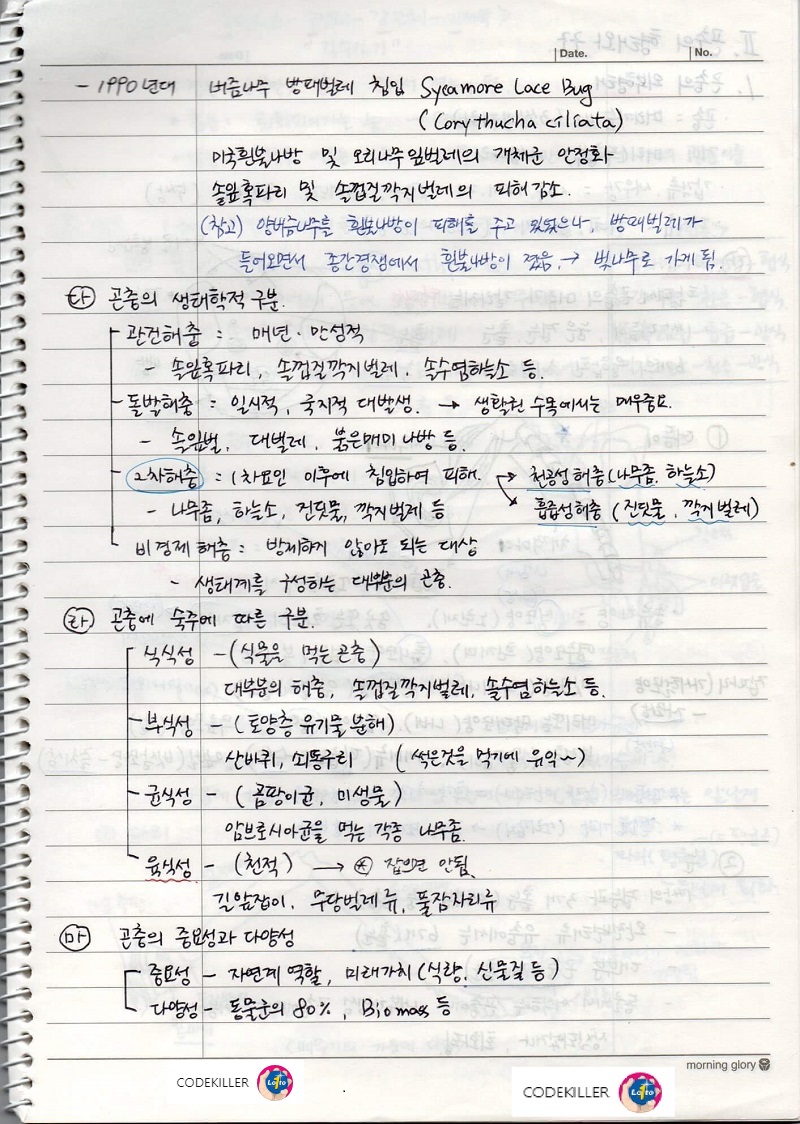 Date.
No.
- 1990년대 버즘나무 방패벌레 침입 Sycamore Lace Bug
(Corythucha ciliata)
미국흰불나방 및 오리나무잎벌레의 개체군 안정화
솔잎혹파리 및 솔껍질깍지벌레의 피해감소.
(참고) 양버즘나무를 흰불나방이 피해를 주고 있었으나, 방패벌레가
들어오면서 종간경쟁에서 흰불나방이 졌음. → 벚나무로 가게 됨.
다 곤충의 생태학적 구분.
관건해충 : 매년·만성적
- 솔잎혹파리, 솔껍질깍지벌레, 솔수염하늘소 등.
돌발해충 : 일시적, 국지적 대발생. → 생활권 수목에서는 매우중요.
- 솔잎벌, 대벌레, 붉은매미나방 등.
2차해충 : 1차요인 이후에 침입하여 피해. 천공성해충(나무좀, 하늘소)
- 나무좀, 하늘소, 진딧물, 깍지벌레 등 흡즙성해충 (진딧물, 깍지벌레)
비경제해충 : 방제하지 않아도 되는 대상
- 생태계를 구성하는 대부분의 곤충.
라 곤충에 숙주에 따른 구분.
식식성 - (식물을 먹는 곤충)
대부분의 해충, 솔껍질깍지벌레, 솔수염하늘소 등.
부식성 - (토양층 유기물 분해)
산바퀴, 쇠똥구리 (썩은것을 먹기에 유익~)
균식성 - (곰팡이균, 미생물)
암브로시아균을 먹는 각종 나무좀.
육식성 - (천적) → 잡으면 안됨.
길앞잡이, 무당벌레류, 풀잠자리류
마 곤충의 중요성과 다양성
중요성 - 자연계 역할, 미래가치(식량, 신물질 등)
다양성 - 동물군의 80%, Biomass 등
morning glory
CODEKILLER Lotto
CODEKILLER Lotto